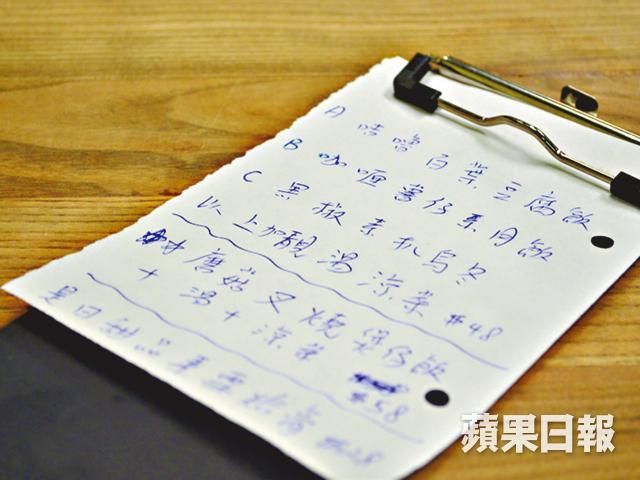 A 咕嚕百葉豆腐飯
B 咖喱薯仔素肉飯
C 黑椒素扒烏冬
以上加靚湯 涼茶 $48
磨菇叉燒煲仔飯
+ 湯 + 涼茶 $58
是日甜品 雪 $28
蘋果日報